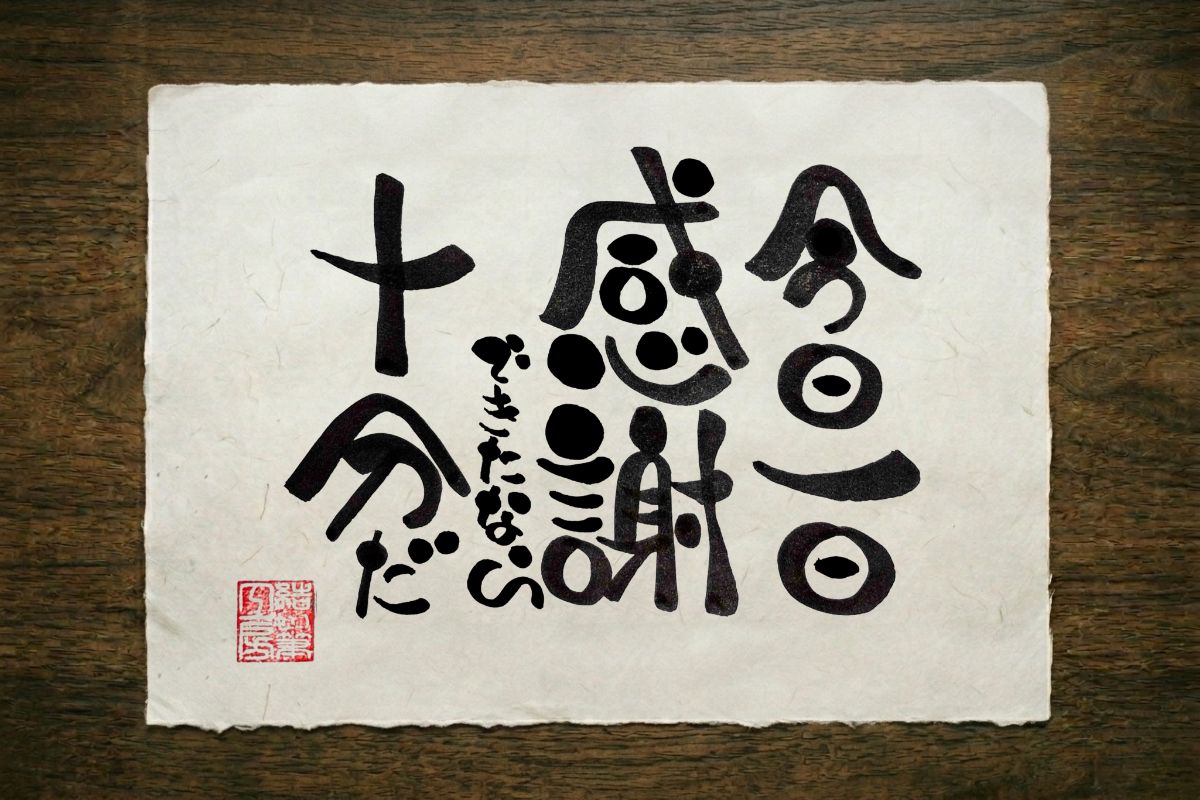 今日一日
感謝
できたなら
十分だ